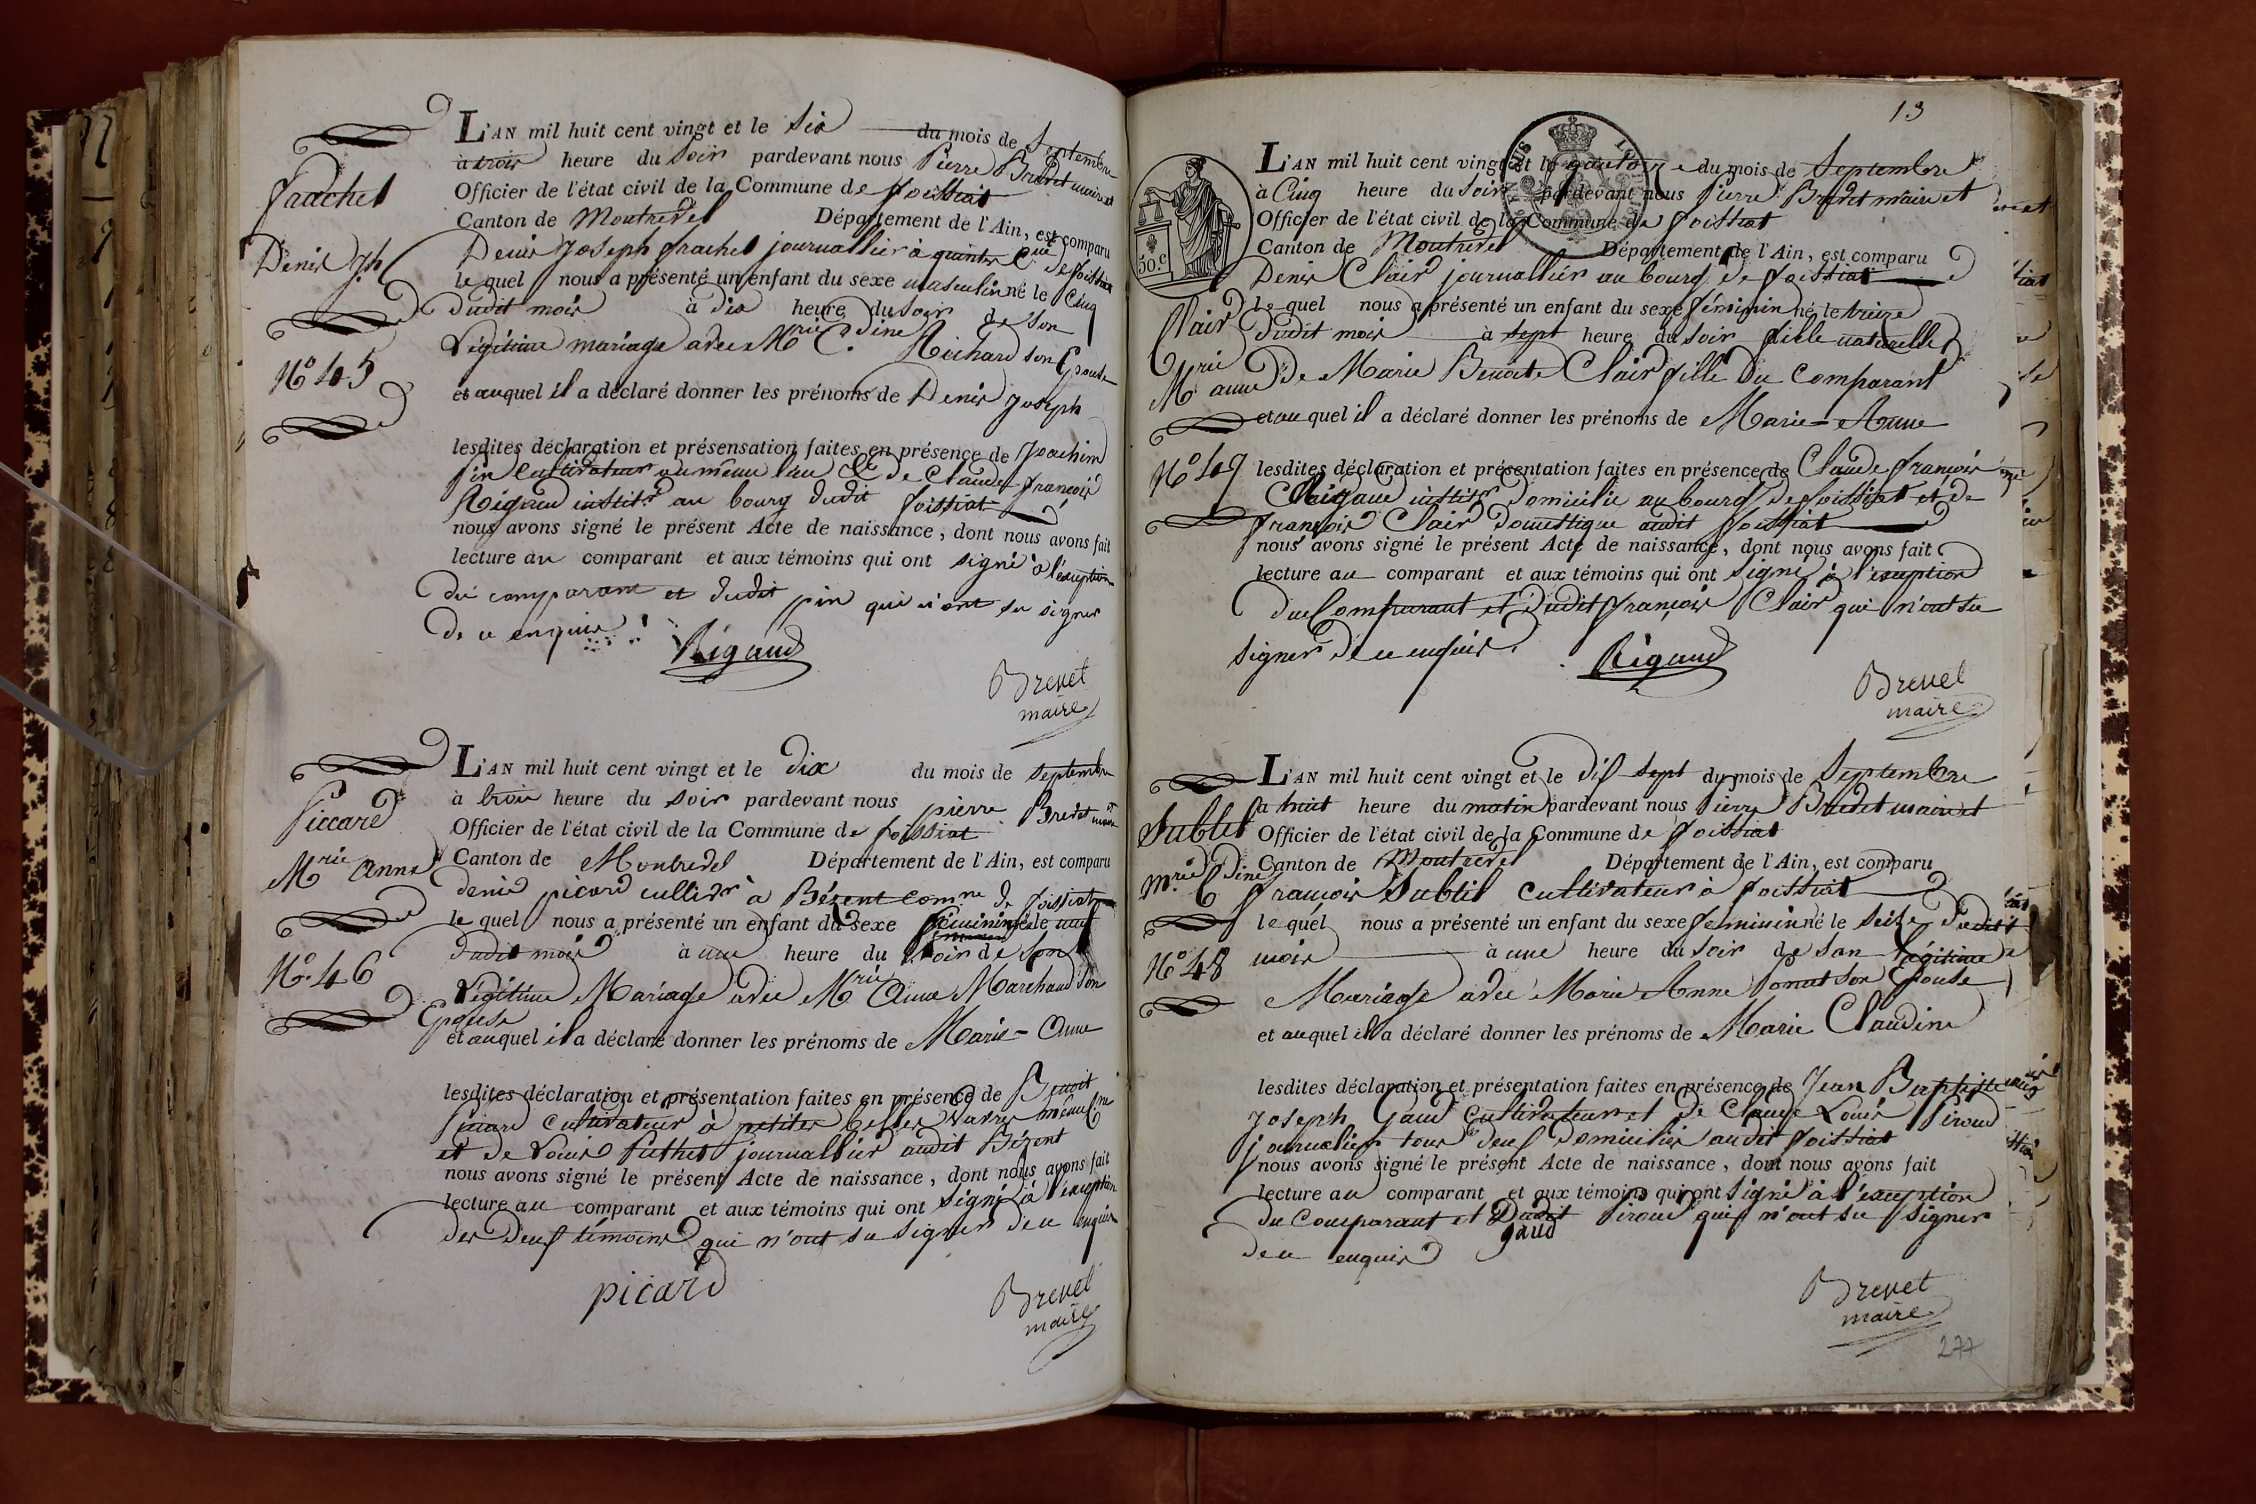 L'AN mil huit cent vingt et le six du mois de Septembre
à trois heure du Soir pardevant nous Pierre Brevet maire et
Officier de l'état civil de la Commune de foissiat
Canton de Montrevel Département de l'Ain, est comparu
Denis Joseph frachet journallier à
le quel nous a présenté un enfant du sexe masculin né le Cinq
dudit mois à dix heure du Soir de son
Légitime mariage avec Mrie C.dine Richard son Epouse
et auquel il a déclaré donner les prénoms de Denis Joseph
lesdites déclaration et présensation faites en présence de Joachim
pin Cultivateur au même lieu & de Claude françois
Rigaud instit.r au bourg dudit foissiat
nous avons signé le présent Acte de naissance, dont nous avons fait
lecture au comparant et aux témoins qui ont signé à l'exception
du comparant et dudit pin qui n'ont su signer
de ce enquis
Rigaud
Brevet
maire
frachet
Denis Jh
No 45
L'AN mil huit cent vingt et le dix du mois de septembre
à trois heure du soir pardevant nous pierre Brevet maire et
Officier de l'état civil de la Commune de foissiat
Canton de Montrevel Département de l'Ain, est comparu
denis picard cultivr à Bézent Comne de foissiat
le quel nous a présenté un enfant du sexe féminin né le neuf
dudit mois à une heure du soir de son
Légitime Mariage avec Mrie Anne Marchand son
Epouse
et auquel il a déclaré donner les prénoms de Marie-Anne
lesdites déclaration et présentation faites en présence de Benoit
picard Cultivateur à petites
et de Louis journallier audit Bézent
nous avons signé le présent Acte de naissance, dont nous avons fait
lecture au comparant et aux témoins qui ont signé à l'exception
des deux témoins qui n'ont su signer de ce enquis
picard
Brevet
maire
Piccard
Mrie Anne
No. 46
13
50.c
L'AN mil huit cent vingt et le quatorze du mois de Septembre
à Cinq heure du Soir pardevant nous Pierre Brevet maire et
Officier de l'état civil de la Commune de foissiat
Canton de Montrevel Département de l'Ain, est comparu
Denis Clair journallier au bourg de foissiat
le quel nous a présenté un enfant du sexe féminin né le treize
dudit mois à sept heure du soir fille naturelle
de Marie Benoite Clair fille du comparant
et au quel il a déclaré donner les prénoms de Marie-Anne
lesdites déclaration et présentation faites en présence de Claude françois
Rigaud instit.r domicilié au bourg de foissiat et de
françois Clair domestique audit foissiat
nous avons signé le présent Acte de naissance, dont nous avons fait
lecture au comparant et aux témoins qui ont signé à l'exception
du Comparant et dudit françois Clair qui n'ont su
signer de ce enquis.
Rigaud
Brevet
maire
Clair
Mrie anne
No 47
L'AN mil huit cent vingt et le dix sept du mois de Septembre
à huit heure du matin pardevant nous Pierre Brevet maire et
Officier de l'état civil de la Commune de foissiat
Canton de Montrevel Département de l'Ain, est comparu
françois Subtil cultivateur à foissiat
le quel nous a présenté un enfant du sexe feminin né le seize dudit
mois à une heure du soir de son Légitime
Mariage avec Marie Anne Ponut son Epouse
et auquel il a déclaré donner les prénoms de Marie Claudine
lesdites déclaration et présentation faites en présence de Jean Baptiste
Joseph Gaud cultivateur et de Claude Louis Piroud
journalier tous deux domiciliés audit foissiat
nous avons signé le présent Acte de naissance, dont nous avons fait
lecture au comparant et aux témoins qui ont signé à l'exception
du Comparant et Dudit Piroud qui n'ont su signer
de ce enquis gaud
Brevet
maire
Subtil
Mrie C.dine
No 48
277